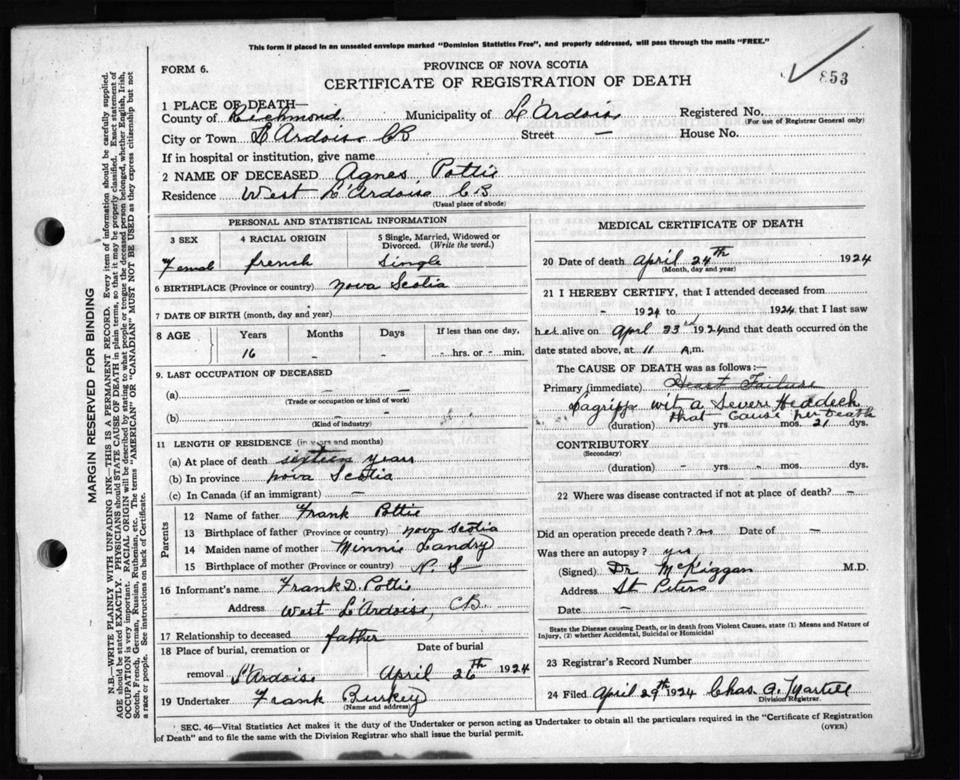 This form if placed in an unsealed envelope marked "Dominion Statistics Free", and properly addressed, will pass through the mails "FREE."
FORM 6.
PROVINCE OF NOVA SCOTIA
CERTIFICATE OF REGISTRATION OF DEATH
853
1 PLACE OF DEATH—
County of Richmond Municipality of L'Ardoise Registered No.
(For use of Registrar General only)
City or Town L'Ardoise CB Street — House No.
If in hospital or institution, give name
2 NAME OF DECEASED Agnes Pottie
Residence West L'Ardoise C.B
(Usual place of abode)
PERSONAL AND STATISTICAL INFORMATION
3 SEX 4 RACIAL ORIGIN 5 Single, Married, Widowed or Divorced. (Write the word.)
Femal french Single
6 BIRTHPLACE (Province or country) Nova Scotia
7 DATE OF BIRTH (month, day and year)
8 AGE Years Months Days If less than one day,
16 - - - hrs. or - min.
9. LAST OCCUPATION OF DECEASED
(a) — —
(Trade or occupation or kind of work)
(b) — —
(Kind of industry)
11 LENGTH OF RESIDENCE (in years and months)
(a) At place of death sixteen years
(b) In province nova Scotia
(c) In Canada (if an immigrant) —
Parents
12 Name of father Frank Pottie
13 Birthplace of father (Province or country) nova Scotia
14 Maiden name of mother Minnie Landry
15 Birthplace of mother (Province or country) N. S
16 Informant's name Frank D. Pottie
Address West L'Ardoise, CB
17 Relationship to deceased father
18 Place of burial, cremation or removal Date of burial
L'Ardoise April 26th 1924
19 Undertaker Frank Burkey
(Name and address)
MEDICAL CERTIFICATE OF DEATH
20 Date of death April 24th 1924
(Month, day and year)
21 I HEREBY CERTIFY, that I attended deceased from
- 1924 to 1924 that I last saw
her alive on April 23rd 1924 and that death occurred on the
date stated above, at 11 A.m.
The CAUSE OF DEATH was as follows:—
Primary (immediate) Heart Failure
Lagripp wit a Severe Heddeck
that Cause her Death
(duration) yrs. mos. 21 dys.
CONTRIBUTORY
(Secondary)
(duration) - yrs. - mos. dys.
22 Where was disease contracted if not at place of death? —
Did an operation precede death? no Date of —
Was there an autopsy? yes
(Signed) Dr McKiggan M.D.
Address St Peters
Date —
State the Disease causing Death, or in death from Violent Causes, state (1) Means and Nature of Injury, (2) whether Accidental, Suicidal or Homicidal
23 Registrar's Record Number
24 Filed April 29th 1924 Chas. G. Martell
Division Registrar.
SEC. 46—Vital Statistics Act makes it the duty of the Undertaker or person acting as Undertaker to obtain all the particulars required in the "Certificate of Registration
of Death" and to file the same with the Division Registrar who shall issue the burial permit.
(OVER)
MARGIN RESERVED FOR BINDING
N.B.—WRITE PLAINLY WITH UNFADING INK—THIS IS A PERMANENT RECORD. Every item of information should be carefully supplied.
AGE should be stated EXACTLY. PHYSICIANS should STATE CAUSE OF DEATH in plain terms, so that it may be properly classified. Exact statement of
OCCUPATION is very important. RACIAL ORIGIN will be described by stating to what people or tongue the deceased person belonged, whether English, Irish,
Scotch, French, German, Russian, Ruthenian, etc. The terms "AMERICAN" OR "CANADIAN" MUST NOT BE USED as they express citizenship but not
a race or people. See instructions on back of Certificate.